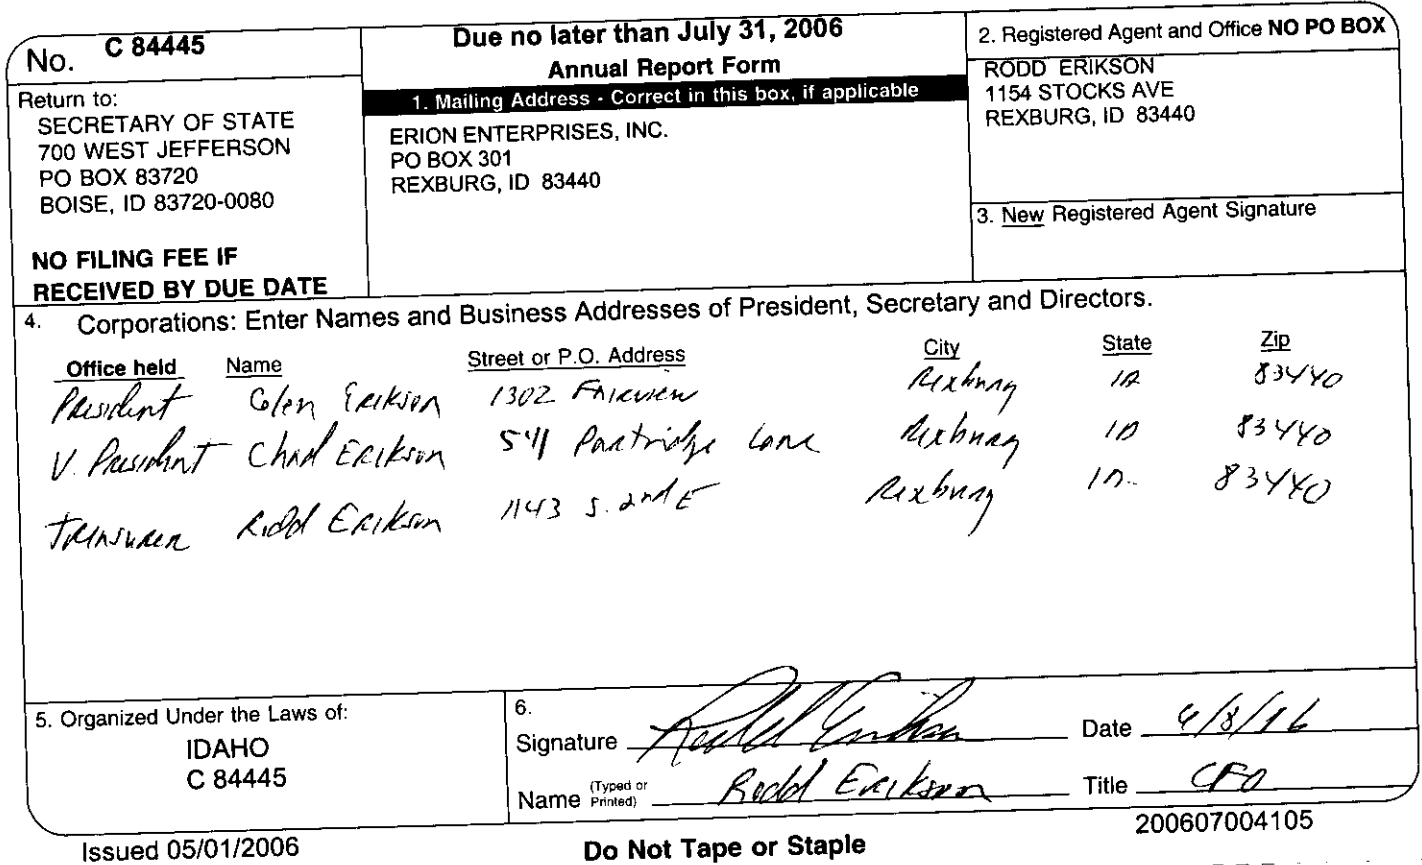 No. C 84445
Return to:
SECRETARY OF STATE
700 WEST JEFFERSON
PO BOX 83720
BOISE, ID 83720-0080
NO FILING FEE IF
RECEIVED BY DUE DATE
Due no later than July 31, 2006
Annual Report Form
1. Mailing Address - Correct in this box, if applicable
ERION ENTERPRISES, INC.
PO BOX 301
REXBURG, ID 83440
2. Registered Agent and Office NO PO BOX
RODD ERIKSON
1154 STOCKS AVE
REXBURG, ID 83440
3. New Registered Agent Signature
4. Corporations: Enter Names and Business Addresses of President, Secretary and Directors.
Office held Name Street or P.O. Address City State Zip
President Colen Erikson 1302 Fairview Rexburg ID 83440
V. President Chad Erikson 541 Partridge Lane Rexburg ID 83440
Treasurer Rodd Erikson 1143 S. 2nd E Rexburg ID. 83440
5. Organized Under the Laws of:
IDAHO
C 84445
6.
Signature Rodd Erikson Date
Name (Typed or Printed) Rodd Erikson Title CFO
Issued 05/01/2006
Do Not Tape or Staple
200607004105